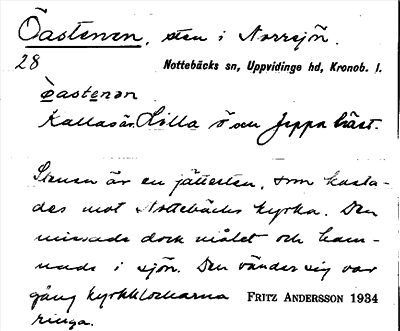 Öastenen, sten i Norrsjön.
28 Nottebäcks sn, Uppvidinge hd, Kronob. l.
öastenen
Kallas än Lilla ö och Jeppa häst.
Stenen är en jättesten, som kasta-
des mot Nottebäcks kyrka. Den
missade dock målet och ham-
nade i sjön. Den vänder sig var
gång kyrkklockarna FRITZ ANDERSSON 1934
ringa.